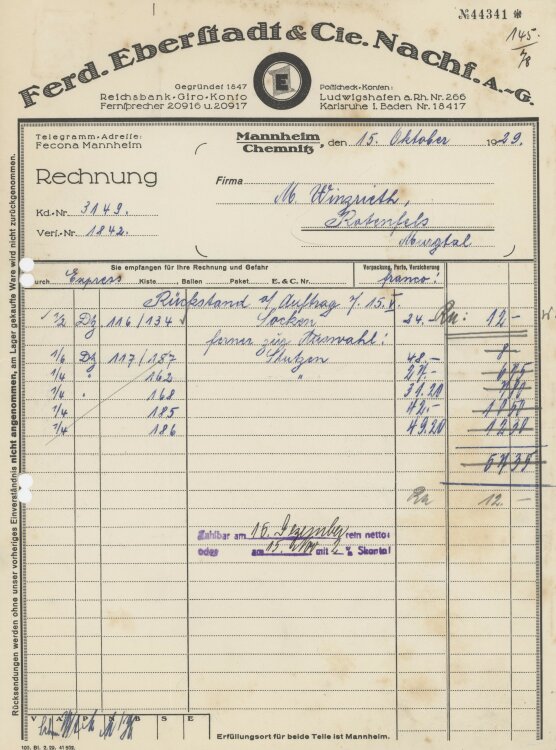 № 44341 *
145.
/78
Ferd. Eberstadt & Cie. Nachf. A.-G.
Gegründet 1847
Reichsbank-Giro-Konto
Fernsprecher 20916 u. 20917
E
Postscheck-Konten:
Ludwigshafen a. Rh. Nr. 266
Karlsruhe i. Baden Nr. 18417
Telegramm-Adresse:
Fecona Mannheim
Mannheim
Chemnitz, den 15. Oktober 1929.
Rechnung
Firma
M. Winzrieth,
Rotenfels
Murgtal
Kd.-Nr 3149.
Verf.-Nr 1842.
Sie empfangen für Ihre Rechnung und Gefahr
Verpackung, Porto, Versicherung
durch Express Kiste Ballen Paket E. & C. Nr. franco!
Rückstand a/ Auftrag v. 15. V.
1/2 Dz 116/134 Socken 24. Rm: 12 -
ferner zur Auswahl:
1/6 Dz 117/157 Stutzen 48.- 8
1/4 " 162 " 27.- 6 75
1/4 " 168 31.20 7 80
1/4 185 42.- 10 50
1/4 186 49.20 12 30
57 35
Rm 12.-
Zahlbar am 16. Dezember rein netto:
oder am 15. Nov mit 2 % Skonto!
Rücksendungen werden ohne unser vorheriges Einverständnis nicht angenommen, am Lager gekaufte Ware wird nicht zurückgenommen.
V A P N B S E
Erfüllungsort für beide Teile ist Mannheim.
103. Bl. 2. 29. 41 929.